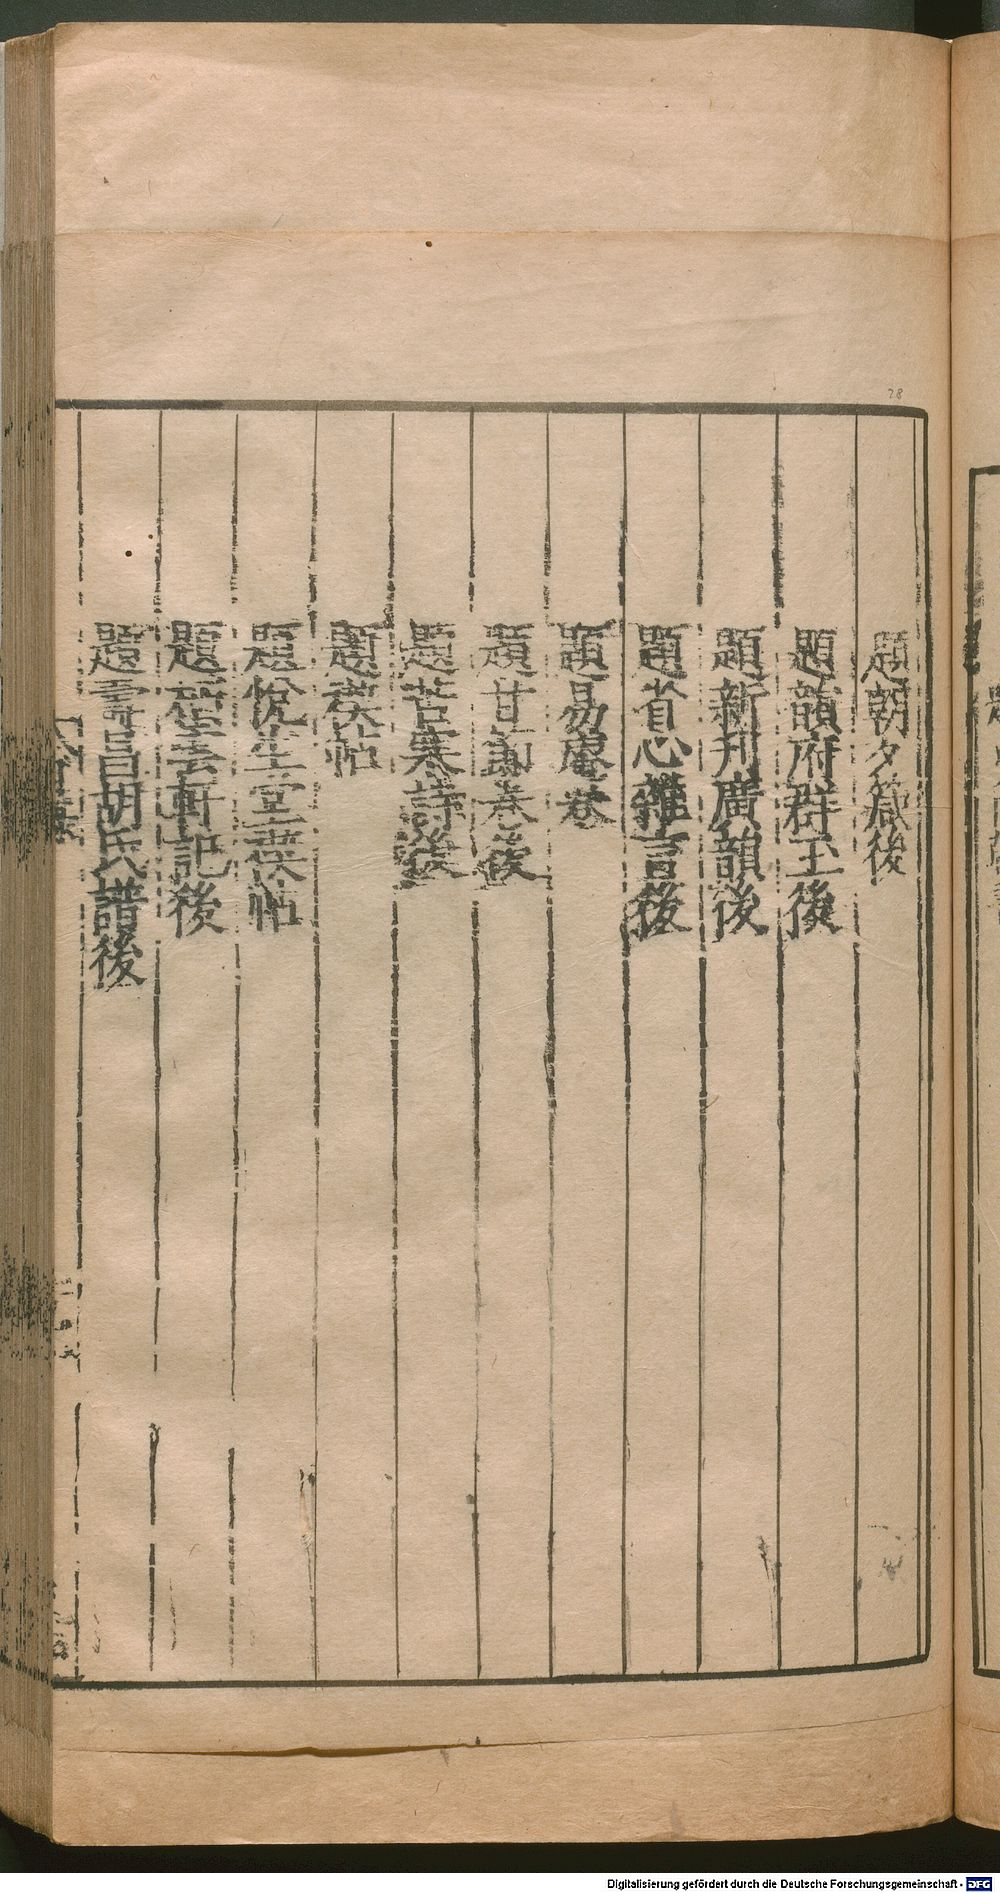 28
題朝夕箴後
題韻府群玉後
題新刋廣韻後
題省心雜言後
題易庵卷
題甘節卷後
題苦寒詩後
題蘭帖
題悅生堂禊帖
題栖雲軒記後
題壽昌胡氏譜後
Digitalisierung gefördert durch die Deutsche Forschungsgemeinschaft - DFG